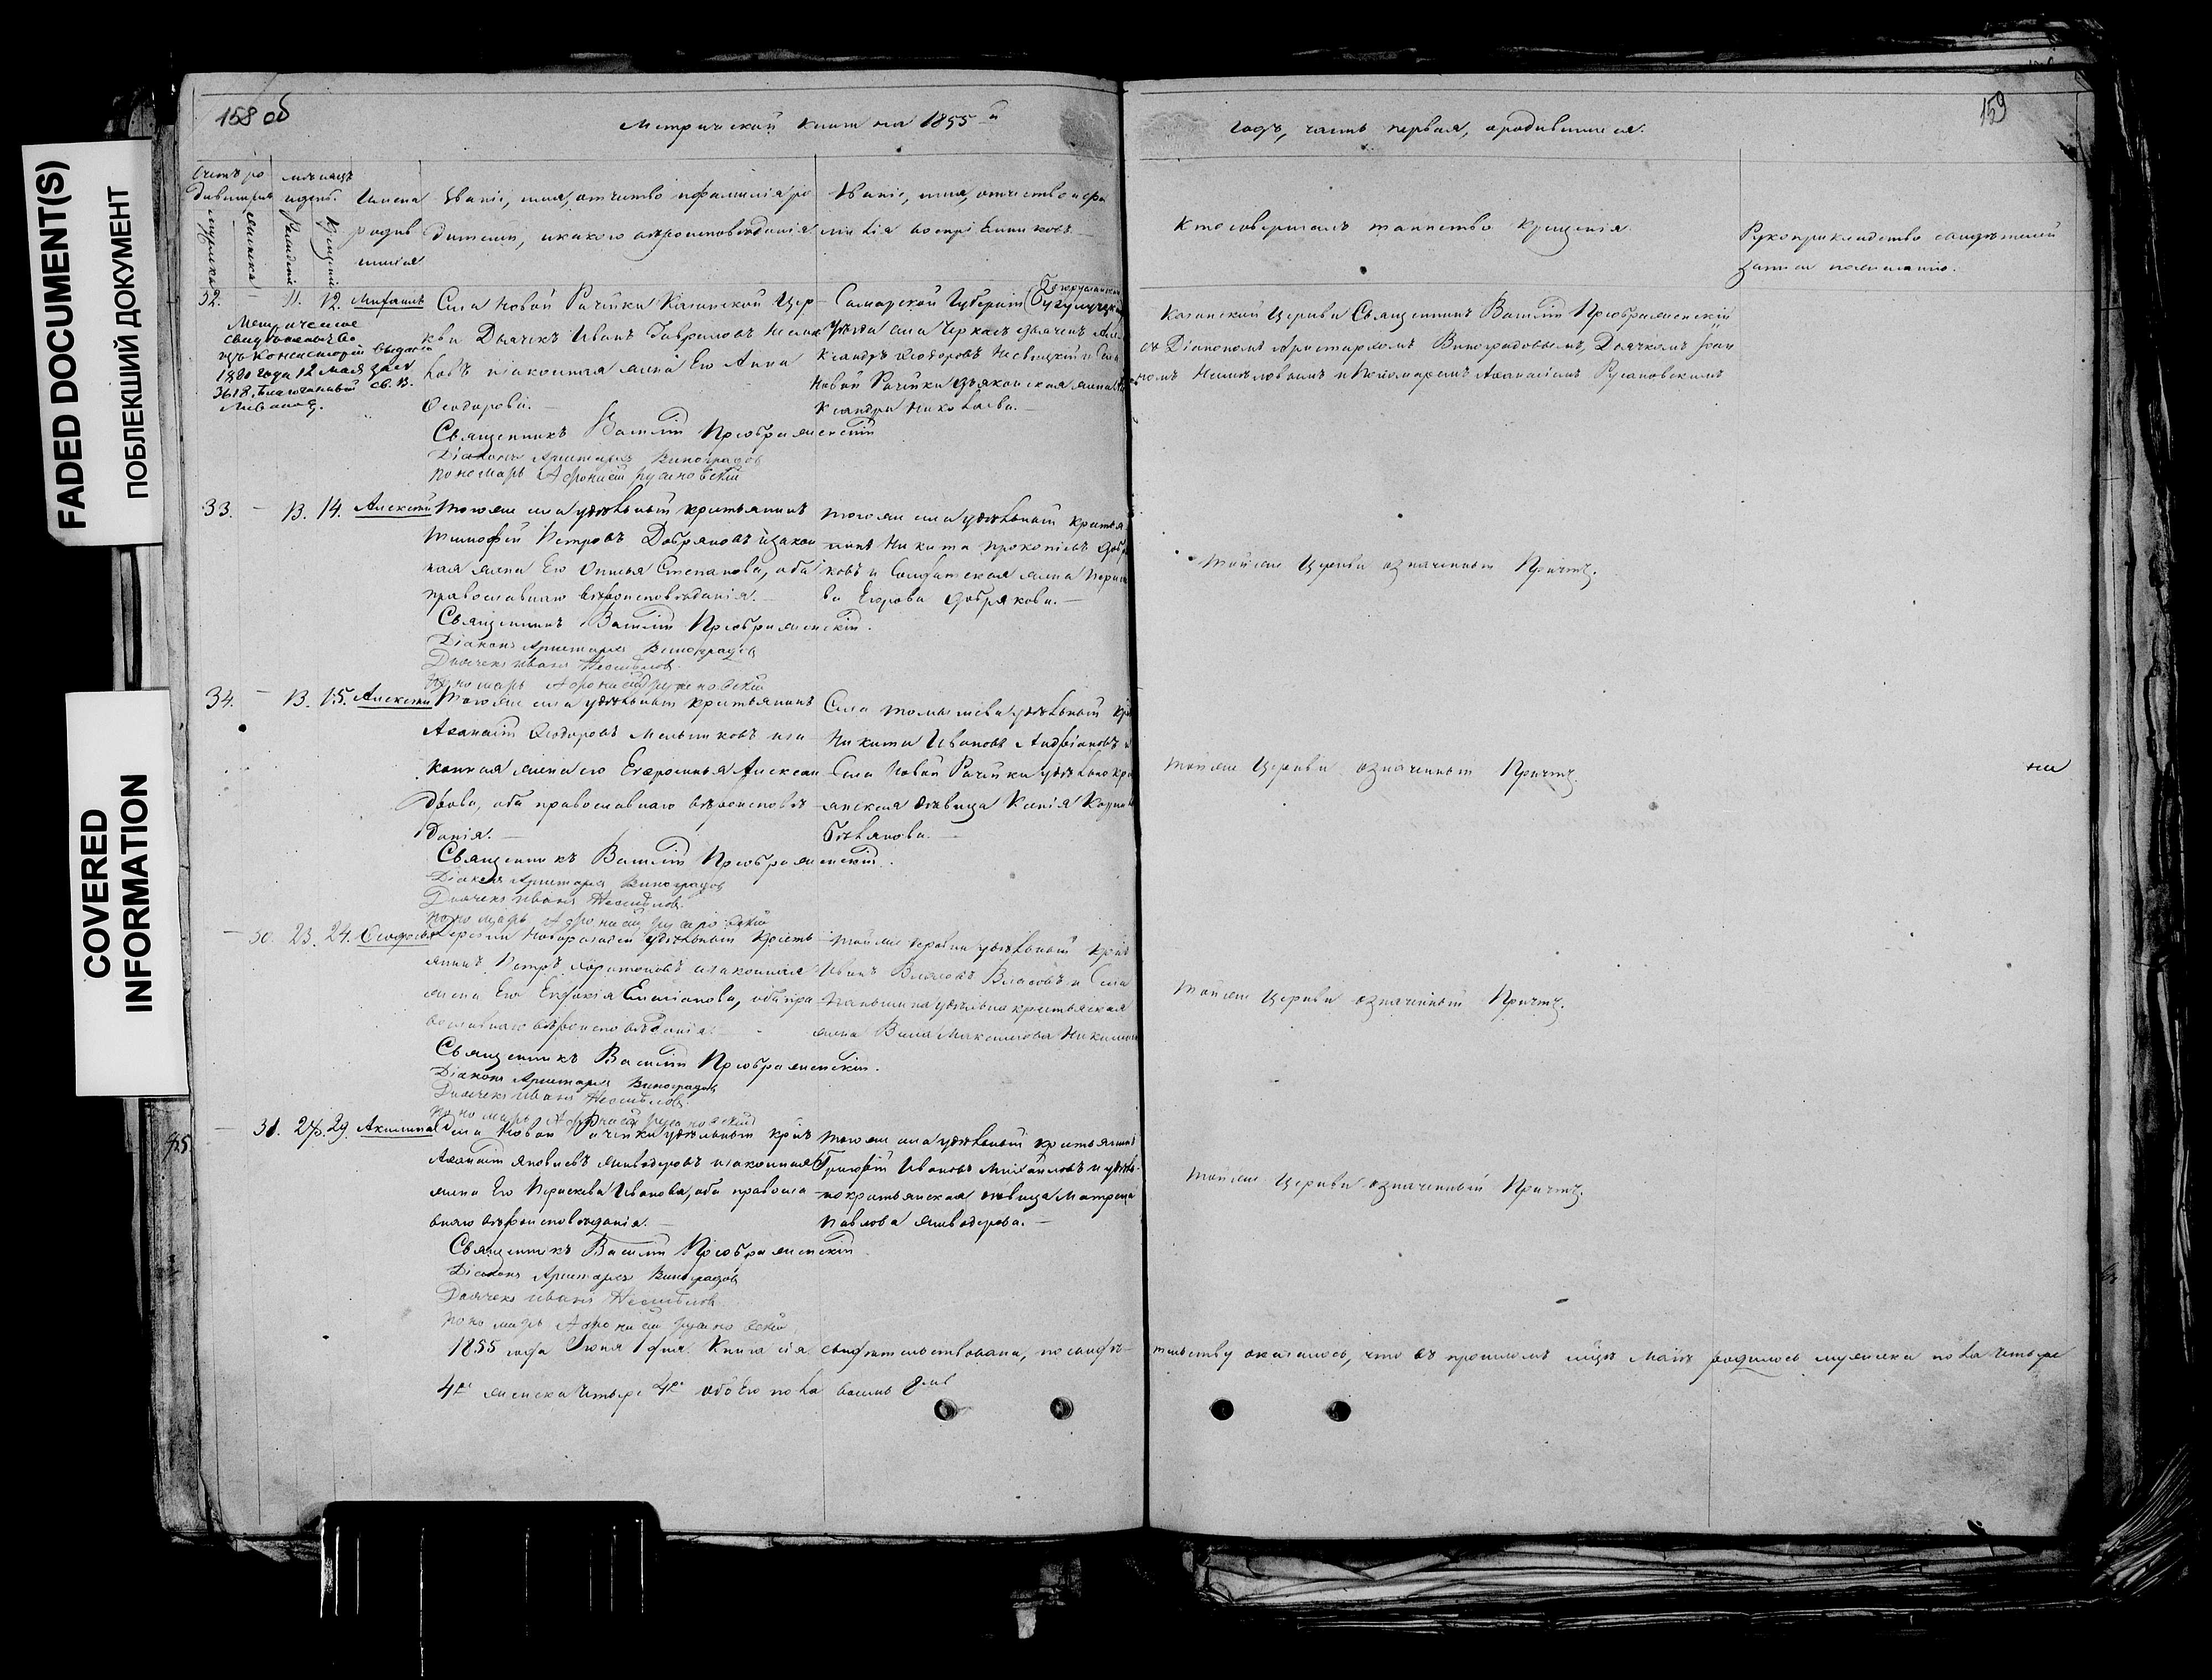 FADED DOCUMENT(S)
ПОБЛЕКШИЙ ДОКУМЕНТ
COVERED
INFORMATION
158 об
Метрической книги на 1855й
годъ, часть первая, о родившихся.
159
Счетъ ро
дившихся
мужска
женска
мѣсяцъ
и день.
рожденія
крещенія
Имена
родив
шихся
Званіе, имя, отчество и фамилія ро
дителей, и какого вѣроисповѣданія
Званіе, имя, отчество и фа
милія воспріемниковъ.
Кто совершалъ таинство крещенія
Рукоприкладство свидѣтелей
записи по желанію.
32. — 11. 12. Михаилъ
Метрическое
свидѣтельство
изъ Консисторіи выдано
1880 года 12 мая за №
3618.
Села Новой Рачейки Казанской Цер
кви Дьячекъ Иванъ Гавриловъ Несмѣ
ловъ и законная жена Его Анна
Ѳеодорова. —
Священникъ Василій Преображенскій
Діаконъ Аристархъ Виноградовъ
пономарь Афонасій Русановскій
Самарской Губерніи Бугурусланскаго
уѣзда села Черкасъ дьячекъ Але
ксандръ Ѳеодоровъ и Села
Новой Рачейки дьяконская жена Але
ксандра Николаева. —
Казанской Церкви Священникъ Василій Преображенскій
съ Діакономъ Аристархомъ Виноградовымъ, Дьячкомъ Іоан
номъ Несмѣловымъ и Пономаремъ Аѳанасіемъ Русановскимъ
33. — 13. 14. Алексѣй
Того же села удѣльный крестьянинъ
Тимофей Петровъ Добряковъ и закон
ная жена Его Степанова, оба
православнаго вѣроисповѣданія. —
Священникъ Василій Преображенскій.
Діаконъ Аристархъ Виноградовъ
Дьячекъ Иванъ Несмѣловъ
пономарь Афонасій Русановскій
Того же села удѣльный крестья
нинъ Никита Прокопіевъ Добря
ковъ и Солдатская жена Параске
ва Егорова Добрякова. —
Той же Церкви означенный Причтъ.
34. — 13. 15. Алексѣй
Того же села удѣльный крестьянинъ
Аѳанасій Ѳеодоровъ Мельниковъ и за
конная жена его Евфросинья Алексан
дрова, оба православнаго вѣроисповѣ
данія. —
Священникъ Василій Преображенскій.
Діаконъ Аристархъ Виноградовъ
Дьячекъ Иванъ Несмѣловъ.
пономарь Афонасій Русановскій
Села Томышева удѣльный кре
Никита Ивановъ Андріановъ и
Села Новой Рачейки удѣльно кре
янская дѣвица Ксенія
Бѣлякова. —
Той же Церкви означенный Причтъ.
— 30. 23. 24. Ѳеодосья
Деревни удѣльный кресть
янинъ Петръ Харитоновъ и законная
жена Его Евдокія Емеліанова, оба пра
вославнаго вѣроисповѣданія. —
Священникъ Василій Преображенскій.
Діаконъ Аристархъ Виноградовъ
Дьячекъ Иванъ Несмѣловъ.
пономарь Афонасій Русановскій
Той же деревни удѣльный крест
Иванъ Власовъ Власовъ и Села
Паньшина удѣльная крестьянская
жена Васса Максимова
Той же Церкви означенный Причтъ.
— 31. 28. 29. Акилина
Села Новой Рачейки удѣльный крес
Аѳанасій Яковлевъ Живодеровъ и законная
жена Его Параскева Иванова, оба правосла
внаго вѣроисповѣданія. —
Священникъ Василій Преображенскій
Діаконъ Аристархъ Виноградовъ
Дьячекъ Иванъ Несмѣловъ
пономарь Афонасій Русановскій
Того же села удѣльный крестьянинъ
Григорій Ивановъ Михайловъ и удѣль
но крестьянская дѣвица Матрена
Павлова Живодерова. —
Той же Церкви означенный Причтъ.
1855 года Іюня 1 дня. Книга сія свидѣтельствована, по свидѣ-
тельству оказалось, что въ прошломъ мцѣ Маѣ родилось мужеска пола четыре
4ре женска четыре 4ре обоего пола восмь 8мь